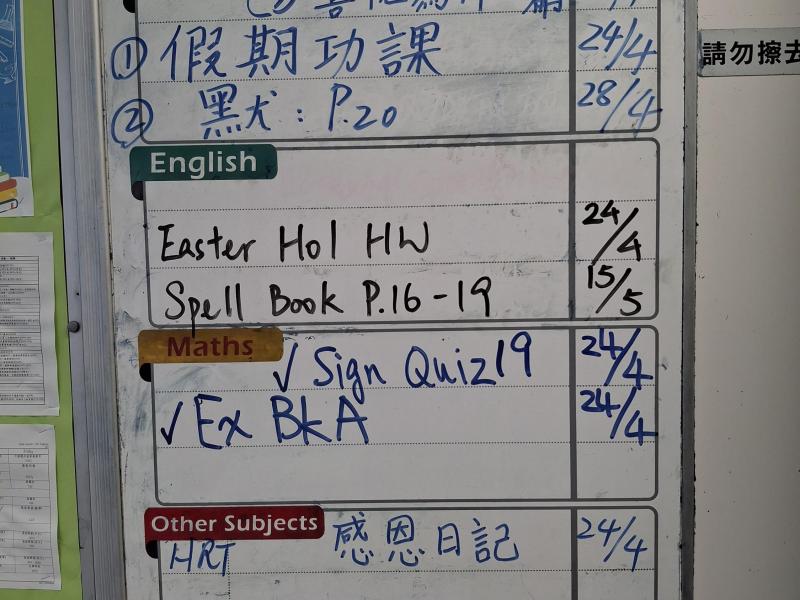 ① 假期功課 24/4
② 黑犬：P.20 28/4
請勿擦去
English
Easter Hol HW 24/4
Spell Book P.16-19 15/5
Maths
✓ Sign Quiz19 24/4
✓ Ex BkA 24/4
Other Subjects
HRT 感恩日記 24/4